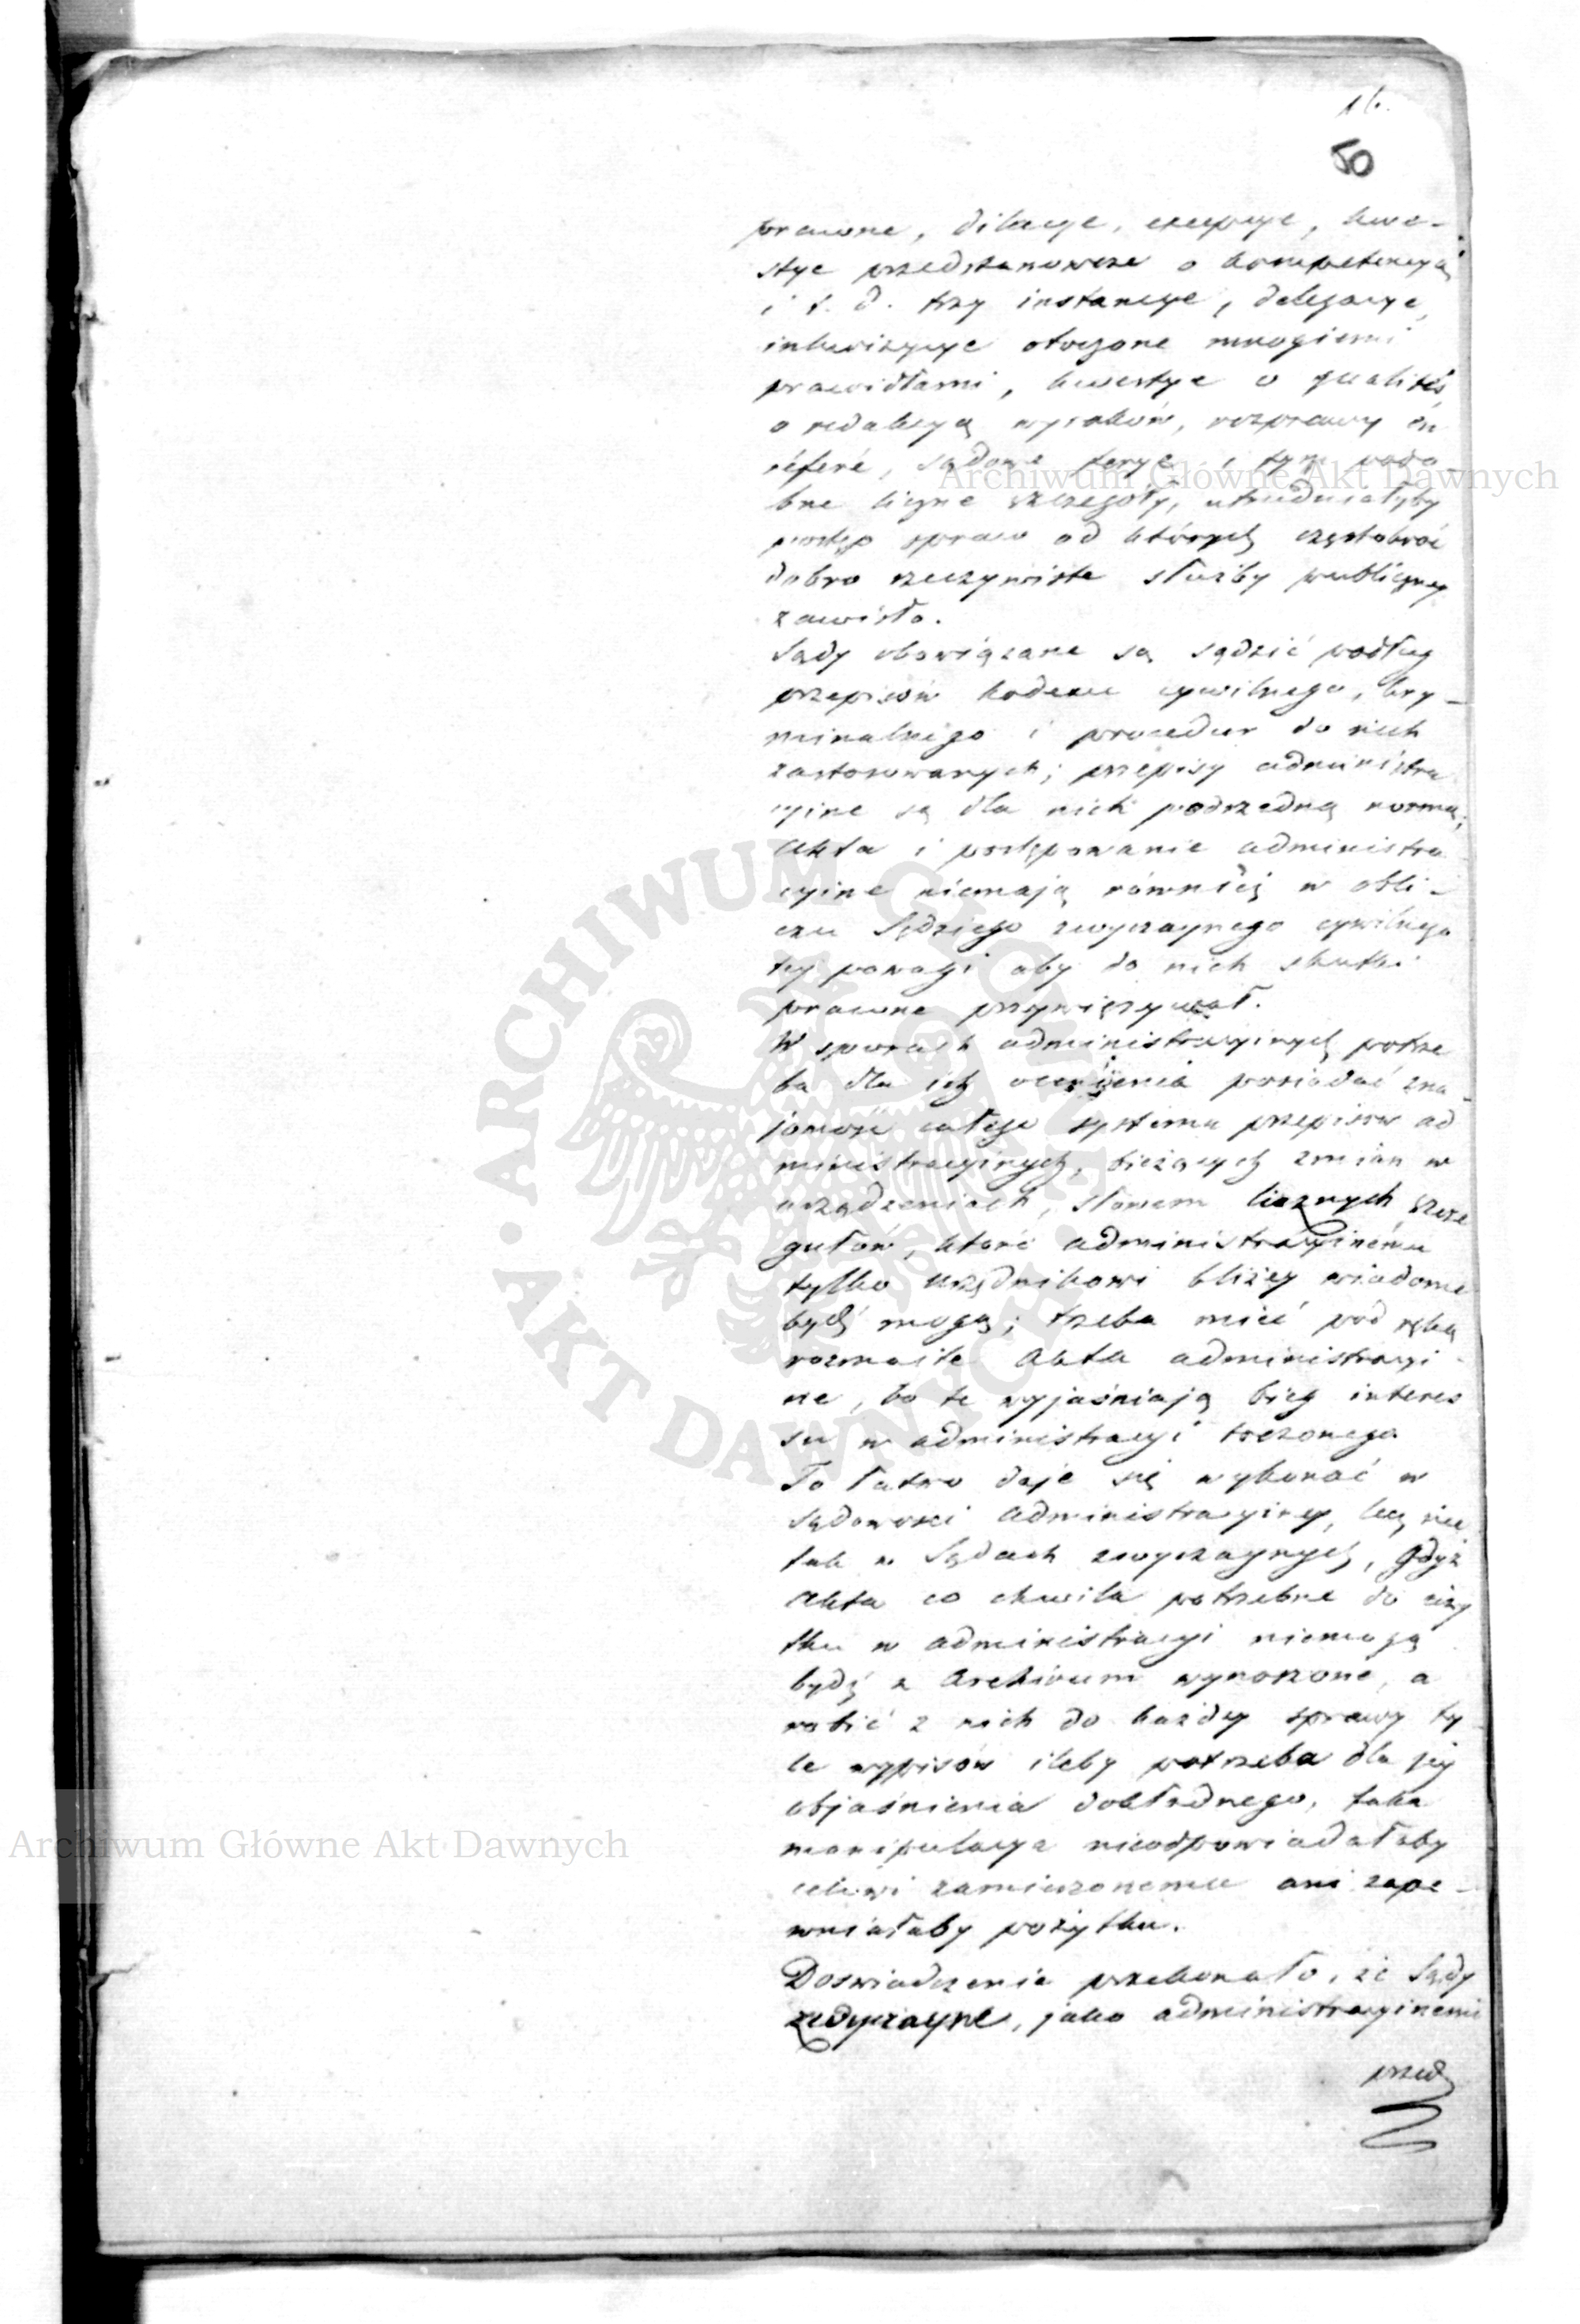 16.
50
prawne, dilacye, excepcye, kwe-
stye przedstanowcze o kompetencyą
i t. d. trzy instancye, delegacye,
inkwizycye otoczone mnogiemi
prawidłami, kwestye o qualités,
o redakcyą wyroków, rozprawy en
référé, sądowe ferye i tym podo-
bne liczne szczegóły, utrudniałyby
postęp spraw od których częstokroć
dobro rzeczywiste służby publiczney
zawisło.
Sądy obowiązane są sądzić podług
przepisów kodexu cywilnego, kry-
minalnego i procedur do nich
zastosowanych; przepisy administra
cyine są dla nich podrzedną normą;
Akta i postępowanie administra
cyine niemają również w obli-
czu Sędziego zwyczaynego cywilnego
tej powagi aby do nich skutki
prawne przywięzywał.
W sporach administracyinych potrze
ba dla ich ocenienia posiadać zna-
jomość całego systemu przepisow ad
ministracyinych, bieżących zmian w
urządzeniach, słowem licznych szcze
gułów, które administracyinému
tylko urzędnikowi bliżey wiadome
bydź mogą; trzeba mieć pod ręką
rozmaite Akta administracyi-
ne, bo te wyjaśniają bieg interes
su w administracyi toczonego
To łatwo daje się wykonać w
sądowości administracyiney, lecz nie
tak w Sądach zwyczaynych, gdyż
Akta co chwila potrzebne do uży
tku w administracyi niemogą
bydź z Archiwum wynoszone, a
robić z nich do każdey sprawy ty-
le wypisów ileby potrzeba dla jej
objaśnienia dokładnego, taka
manipulacya nieodpowiadałaby
celowi zamierzonemu ani zape-
wniałaby pożytku.
Doswiadczenie przekonało, że Sądy
zwyczayne, jako administracyinemi
przed
Archiwum Główne Akt Dawnych
ARCHIWUM GŁÓWNE AKT DAWNYCH
Archiwum Główne Akt Dawnych